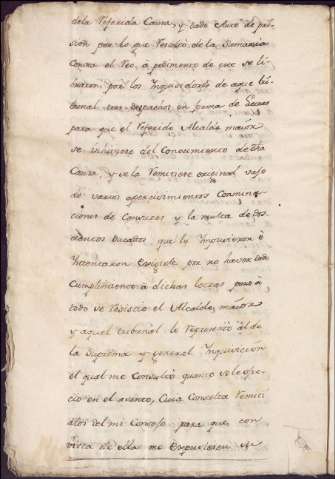 dela Referida Causa, y dado Auto de pri-
sion por lo que Resultó de la Sumaria
Contra el Reo, á pedimento de ese se li-
braron por los Inquisidores de aquel tri-
bunal tres despachos en forma de
para que el Referido Alcalde maior
se inhiviese del Conocimiento de dha
Causa, y se la Remitiese original vajo
de varios apercivimientos Conmina-
ciones de Censuras y la multa de
ducados, que le Impusieron é
Intentaron Exigirle por no haver dado
Cumplimiento á dichas letras pues á
todo se Resistio el Alcalde maior
y aquel tribunal le Representó al de
la Suprema y General Inquisicion
el qual me Consultó quanto se le ofre-
cio en el asunto, Cuia Consulta Remití
á los del mi Consejo para que con
vista de ella me Expusiesen su